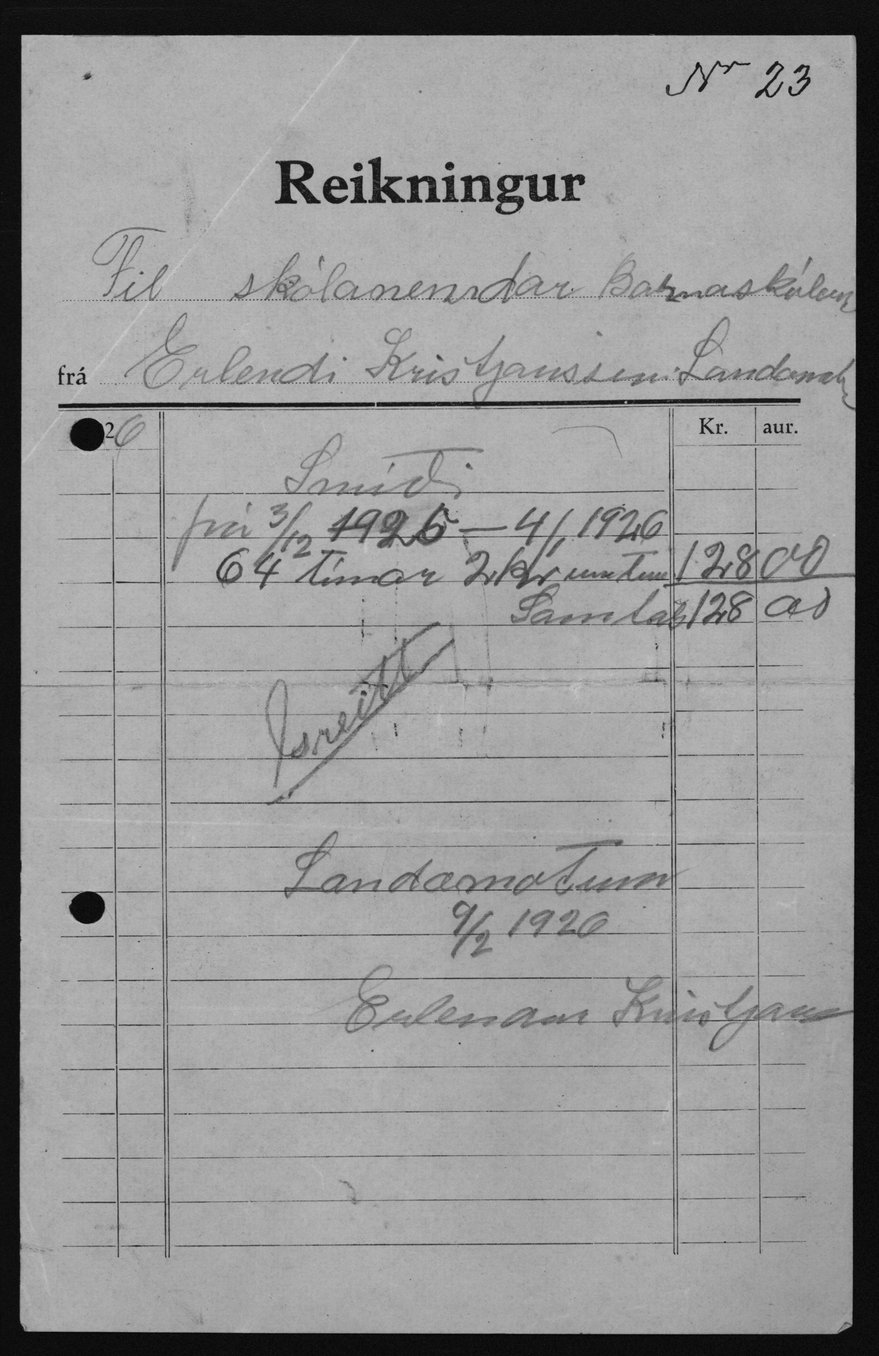 Nr 23
Reikningur
Til skólanendar Barnaskólans
frá Erlendi Kristjanssini Landamót
26 Kr. aur.
Smíði
frá 3/12 1925 — 4/1 1926
64 tímar 2 kr um tím 128 00
Samtals 128 00
Greitt
Landamotum
9/2 1926
Erlendur Kristjans